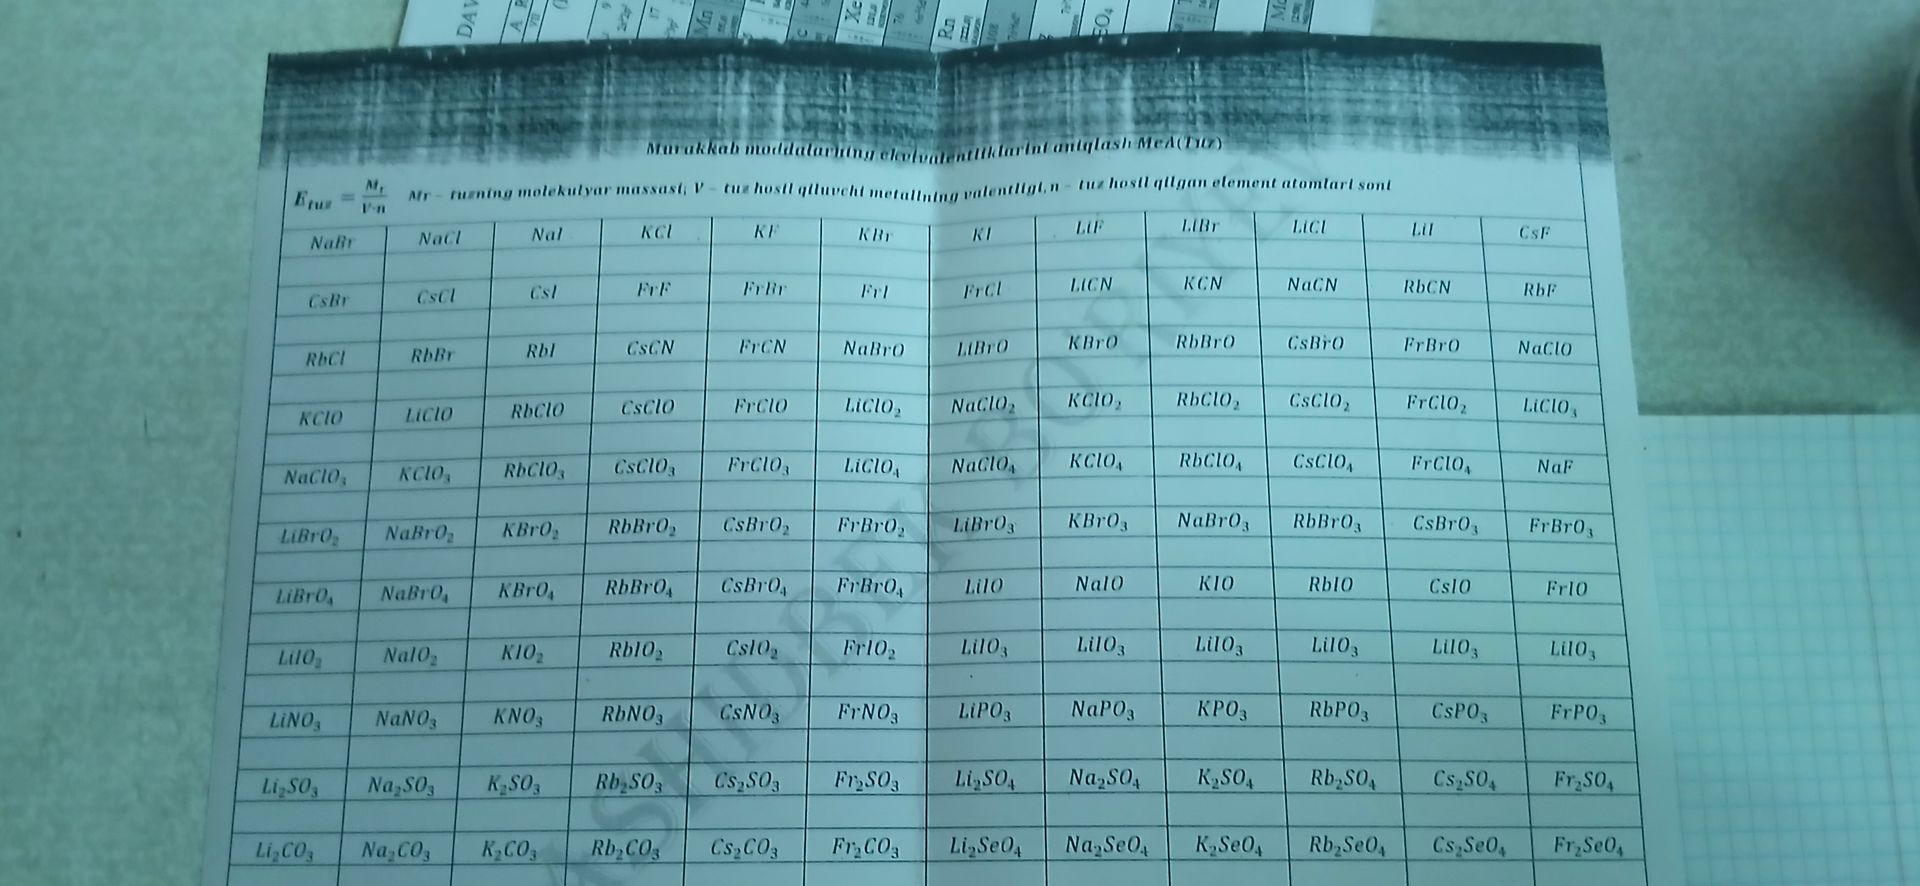 DAV
Mn
Xe
Rn
Murakkab moddalarning ekvivalentliklarini aniqlash MeA(Tuz)
E_tuz = M_r / V·n Mr – tuzning molekulyar massasi, V – tuz hosil qiluvchi metallning valentligi, n – tuz hosil qilgan element atomlari soni
NaBr NaCl NaI KCl KF KBr KI LiF LiBr LiCl LiI CsF
CsBr CsCl CsI FrF FrBr FrI FrCl LiCN KCN NaCN RbCN RbF
RbCl RbBr RbI CsCN FrCN NaBrO LiBrO KBrO RbBrO CsBrO FrBrO NaClO
KClO LiClO RbClO CsClO FrClO LiClO₂ NaClO₂ KClO₂ RbClO₂ CsClO₂ FrClO₂ LiClO₃
NaClO₃ KClO₃ RbClO₃ CsClO₃ FrClO₃ LiClO₄ NaClO₄ KClO₄ RbClO₄ CsClO₄ FrClO₄ NaF
LiBrO₂ NaBrO₂ KBrO₂ RbBrO₂ CsBrO₂ FrBrO₂ LiBrO₃ KBrO₃ NaBrO₃ RbBrO₃ CsBrO₃ FrBrO₃
LiBrO₄ NaBrO₄ KBrO₄ RbBrO₄ CsBrO₄ FrBrO₄ LiIO NaIO KIO RbIO CsIO FrIO
LiIO₂ NaIO₂ KIO₂ RbIO₂ CsIO₂ FrIO₂ LiIO₃ LiIO₃ LiIO₃ LiIO₃ LiIO₃ LiIO₃
LiNO₃ NaNO₃ KNO₃ RbNO₃ CsNO₃ FrNO₃ LiPO₃ NaPO₃ KPO₃ RbPO₃ CsPO₃ FrPO₃
Li₂SO₃ Na₂SO₃ K₂SO₃ Rb₂SO₃ Cs₂SO₃ Fr₂SO₃ Li₂SO₄ Na₂SO₄ K₂SO₄ Rb₂SO₄ Cs₂SO₄ Fr₂SO₄
Li₂CO₃ Na₂CO₃ K₂CO₃ Rb₂CO₃ Cs₂CO₃ Fr₂CO₃ Li₂SeO₄ Na₂SeO₄ K₂SeO₄ Rb₂SeO₄ Cs₂SeO₄ Fr₂SeO₄
ASHIDBEK BO'RIYEV